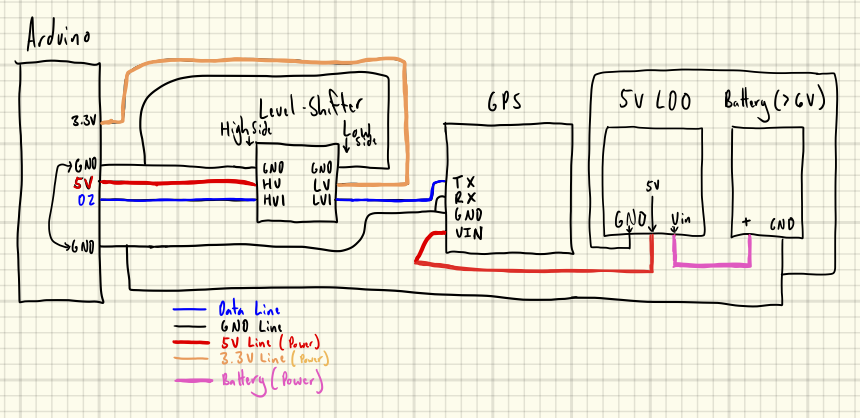 Arduino
3.3V
GND
5V
02
GND
Level-Shifter
High side
Low side
GND
HV
HV1
GND
LV
LV1
GPS
TX
RX
GND
VIN
5V LDO
5V
GND
Vin
Battery (>6V)
+
GND
Data Line
GND Line
5V Line (Power)
3.3V Line (Power)
Battery (Power)